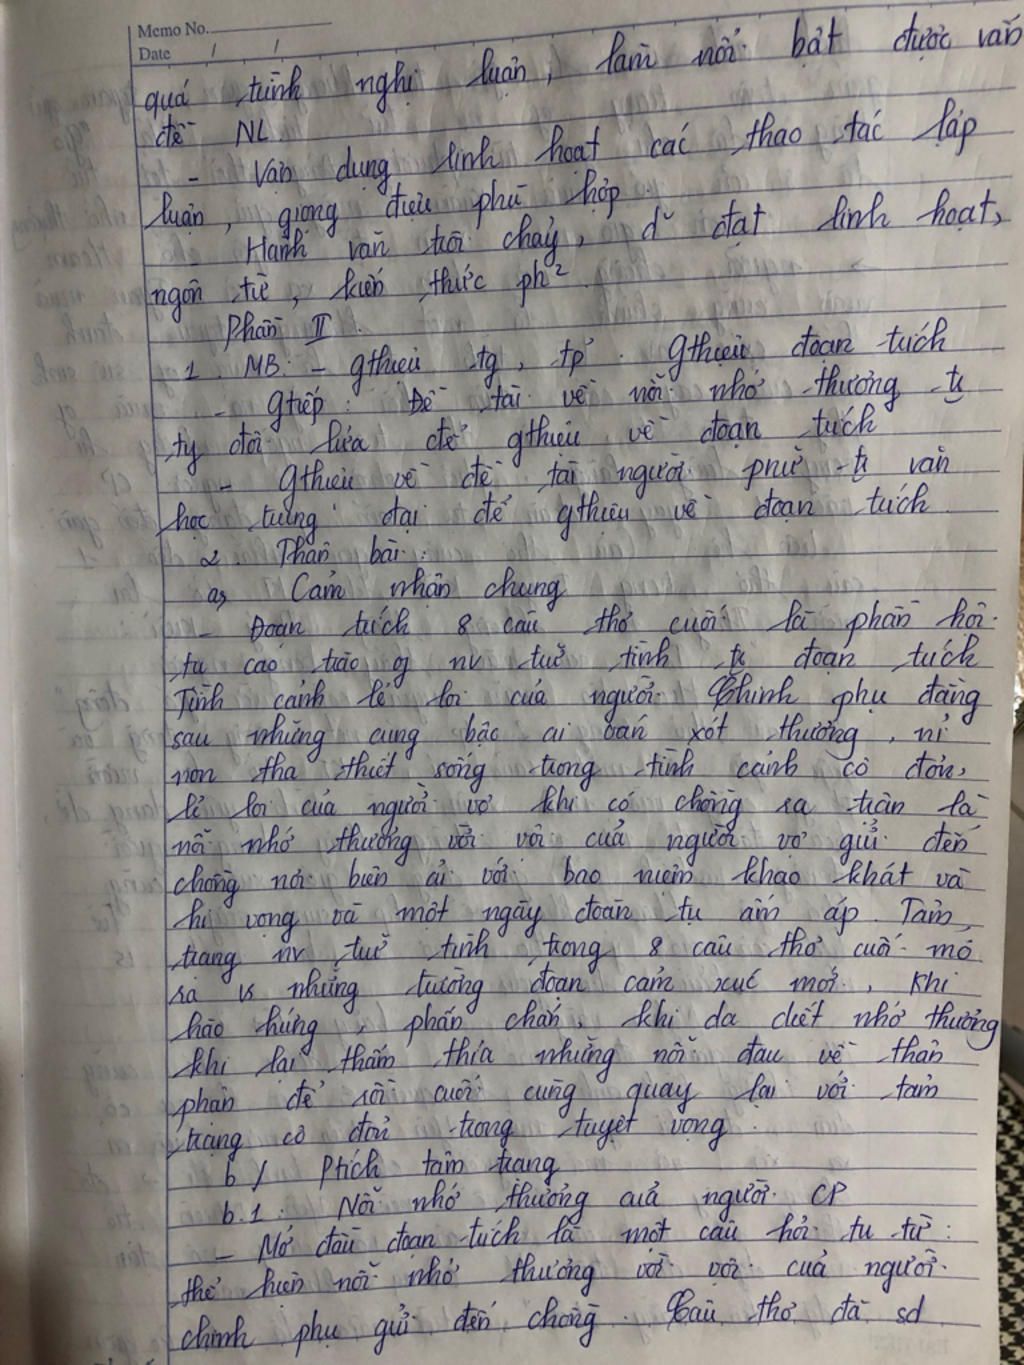 Memo No.
Date / /
quá trình nghị luận, làm nổi bật được vấn
đề NL
- Vận dụng linh hoạt các thao tác lập
luận, giọng điệu phù hợp.
- Hành văn trôi chảy, d đạt linh hoạt,
ngôn từ, kiến thức ph²
Phần II.
1. MB: - gthiệu tg, tp. Gthiệu đoạn trích
- Gtiếp: Đề tài về nỗi nhớ thương tr
ty đôi lứa để gthiệu về đoạn trích
- Gthiệu về đề tài người pnữ tr văn
học trung đại để gthiệu về đoạn trích
2. Thân bài:
a, Cảm nhận chung
- Đoạn trích 8 câu thơ cuối là phần hồi
tụ cao trào of nv trữ tình tr đoạn trích
Tình cảnh lẻ loi của người Chinh phụ đằng
sau những cung bậc ai oán xót thương, nỉ
non tha thiết sống trong tình cảnh cô đơn,
lẻ loi của người vợ khi có chồng ra trận là
nỗi nhớ thương vời vợi của người vợ gửi đến
chồng nơi biên ải với bao niềm khao khát và
hi vọng và một ngày đoàn tụ ấm áp. Tâm
trạng nv trữ tình trong 8 câu thơ cuối mở
ra vs những trường đoạn cảm xúc mới, khi
hào hứng, phấn chấn, khi da diết nhớ thương
khi lại thấm thía những nỗi đau về thân
phận để rồi cuối cùng quay lại với tâm
trạng cô đơn trong tuyệt vọng.
b / Ptích tâm trạng
b.1: Nỗi nhớ thương của người CP
- Mở đầu đoạn trích là một câu hỏi tu từ:
thể hiện nỗi nhớ thương vời vợi của người
chinh phụ gửi đến chồng. Câu thơ đã sd